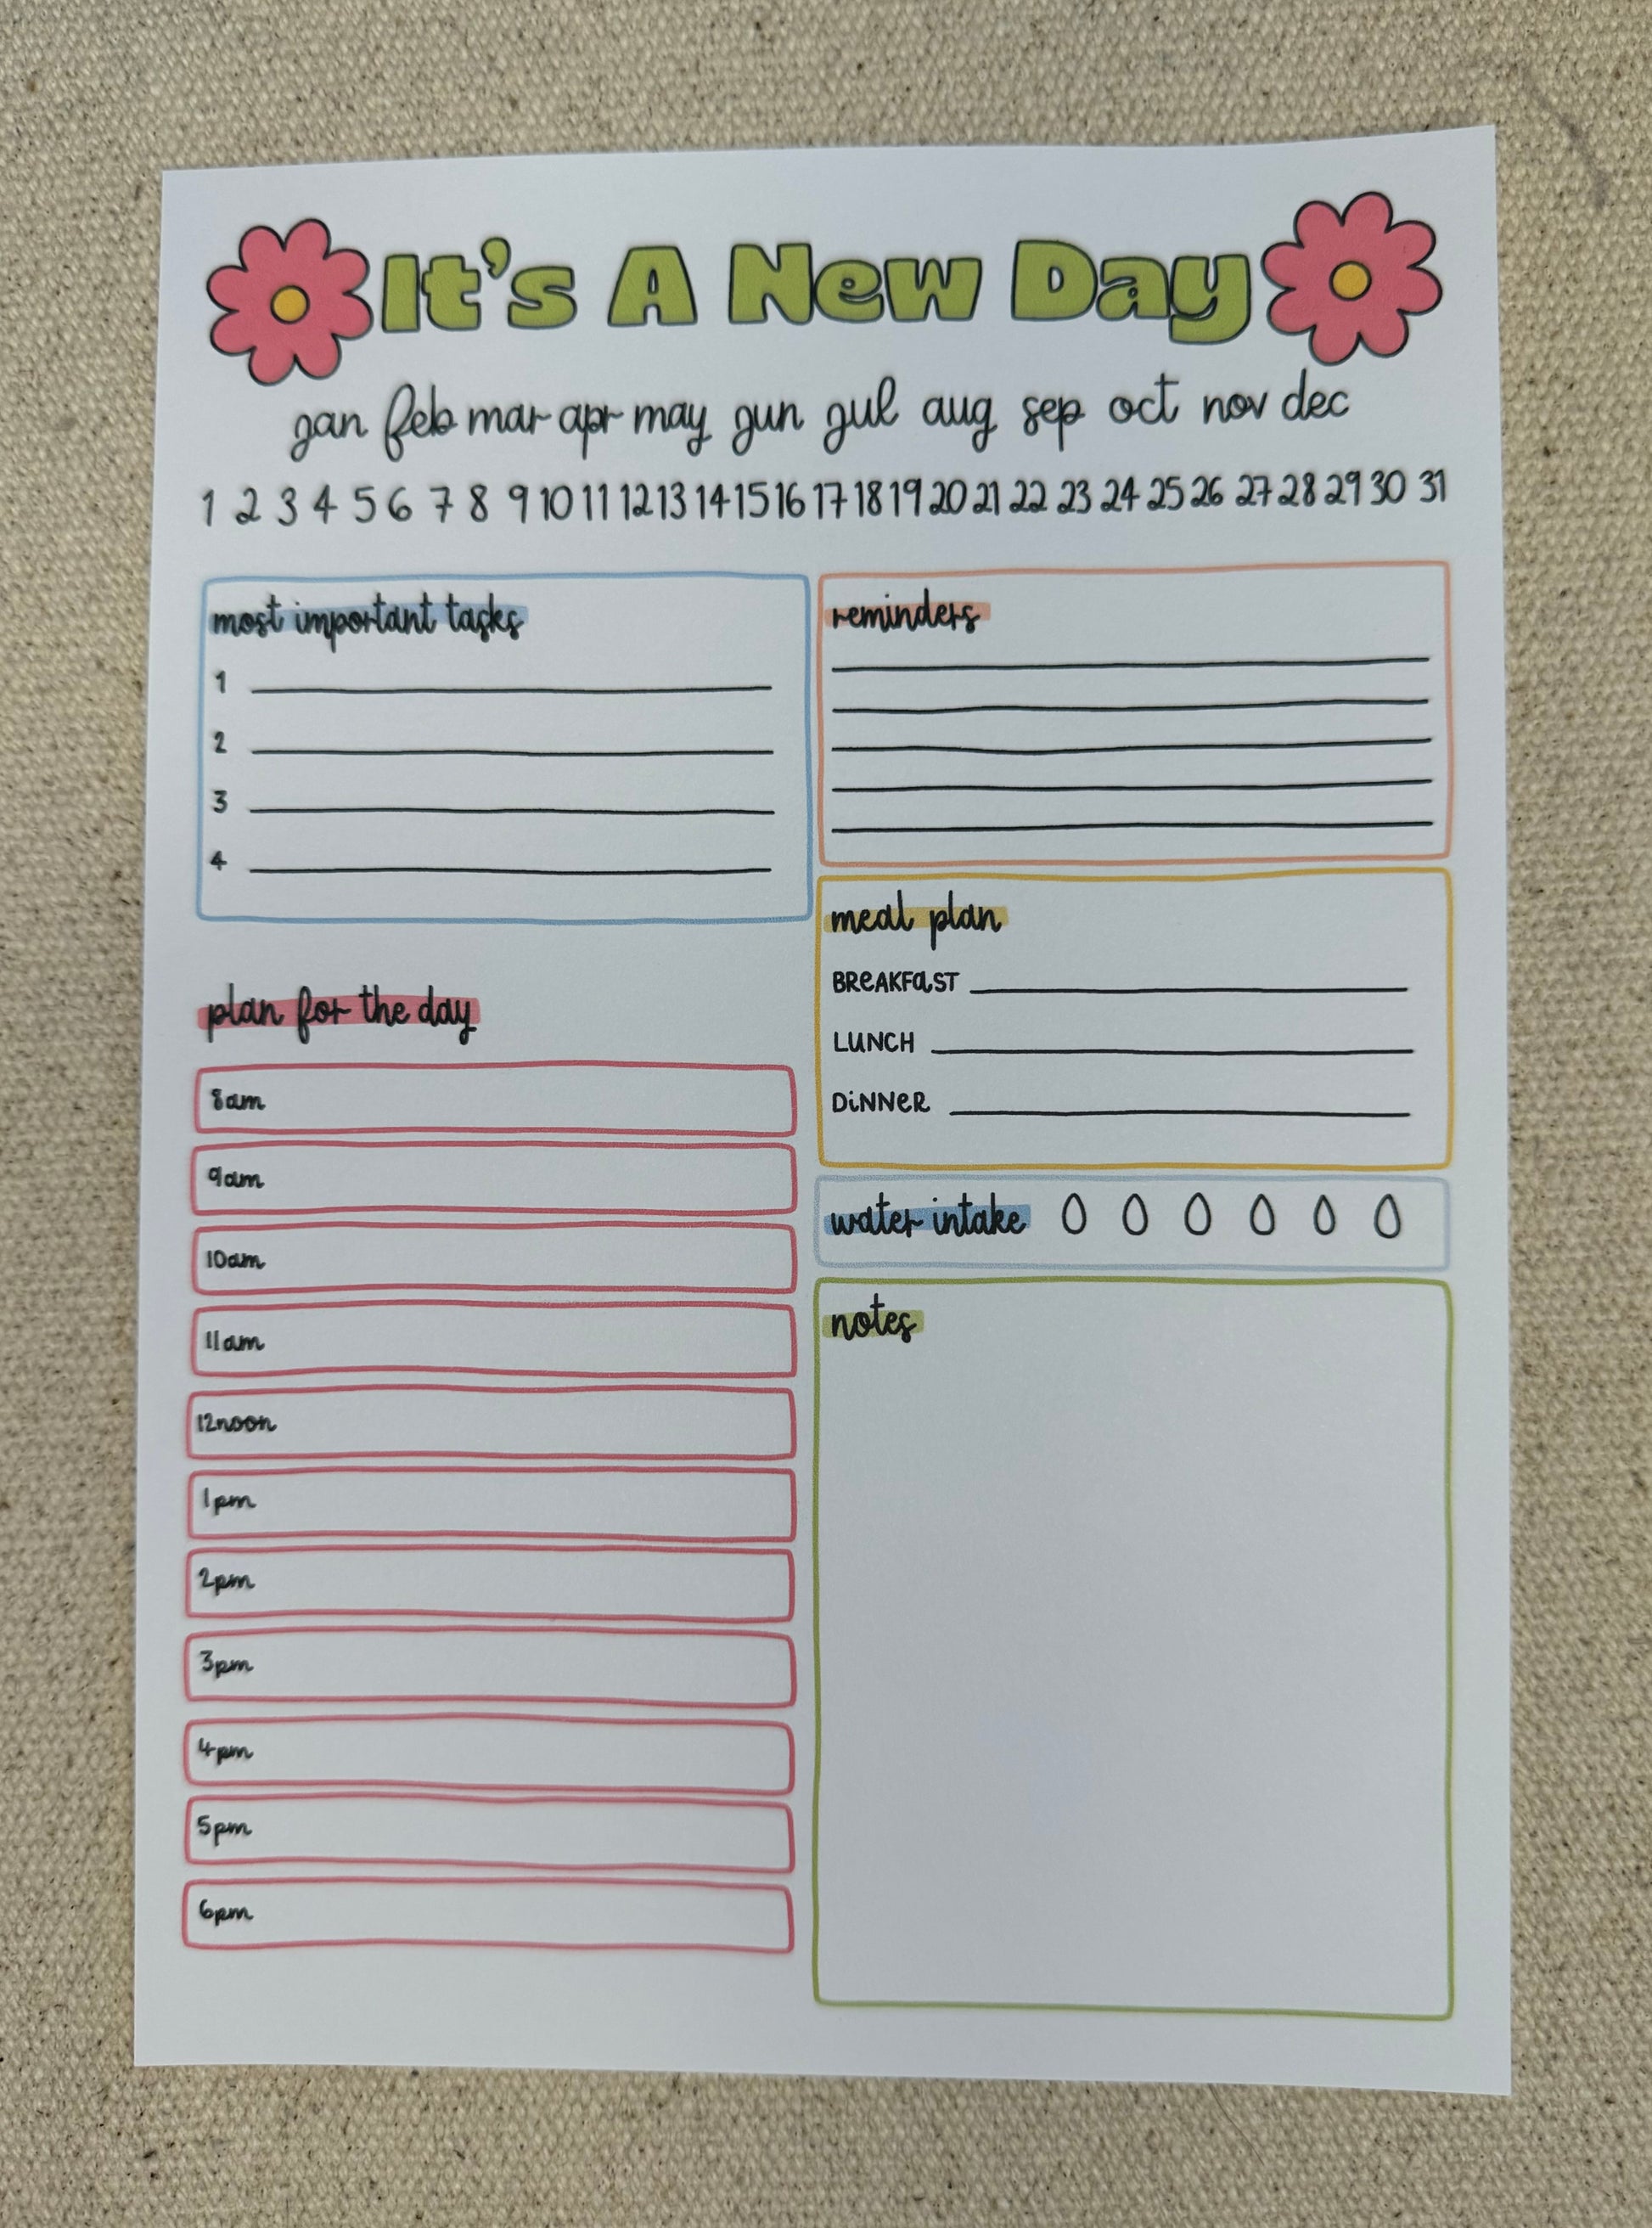 It's A New Day
jan feb mar apr may jun jul aug sep oct nov dec
1 2 3 4 5 6 7 8 9 10 11 12 13 14 15 16 17 18 19 20 21 22 23 24 25 26 27 28 29 30 31
most important tasks
1
2
3
4
plan for the day
8am
9am
10am
11am
12noon
1pm
2pm
3pm
4pm
5pm
6pm
reminders
meal plan
BReAKFaST
LUNCH
DiNNeR
water intake
notes